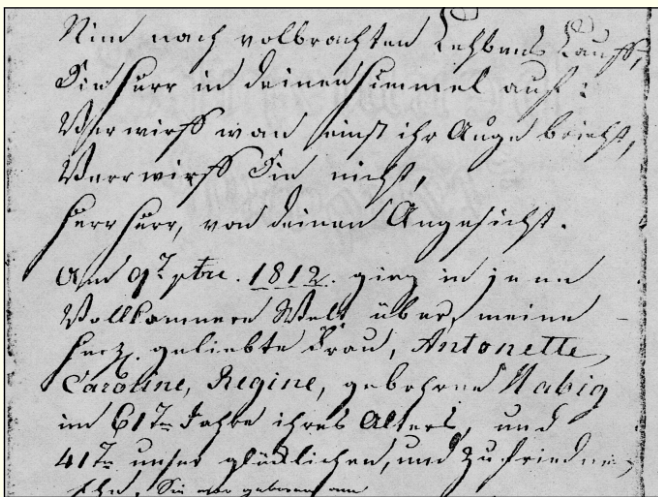 Nim nach volbrachten Lehbens Lauff,
Sie Herr in deinen Himmel auf:
Verwirff wan einst ihr Auge bricht,
Verrwirff Sie nicht,
Herr Herr, von deinen Angesicht.
Am 9t ptre. 1812. ging in jenne
Vollkamnere Welt über, meine
herz. geliebte Frau, Antonette,
Caroline, Regine, gebohrne Habig
im 61t Jahre ihres Alters, und
41t unser glücklichen, und zufriednen
Ehe. Sie war geboren am